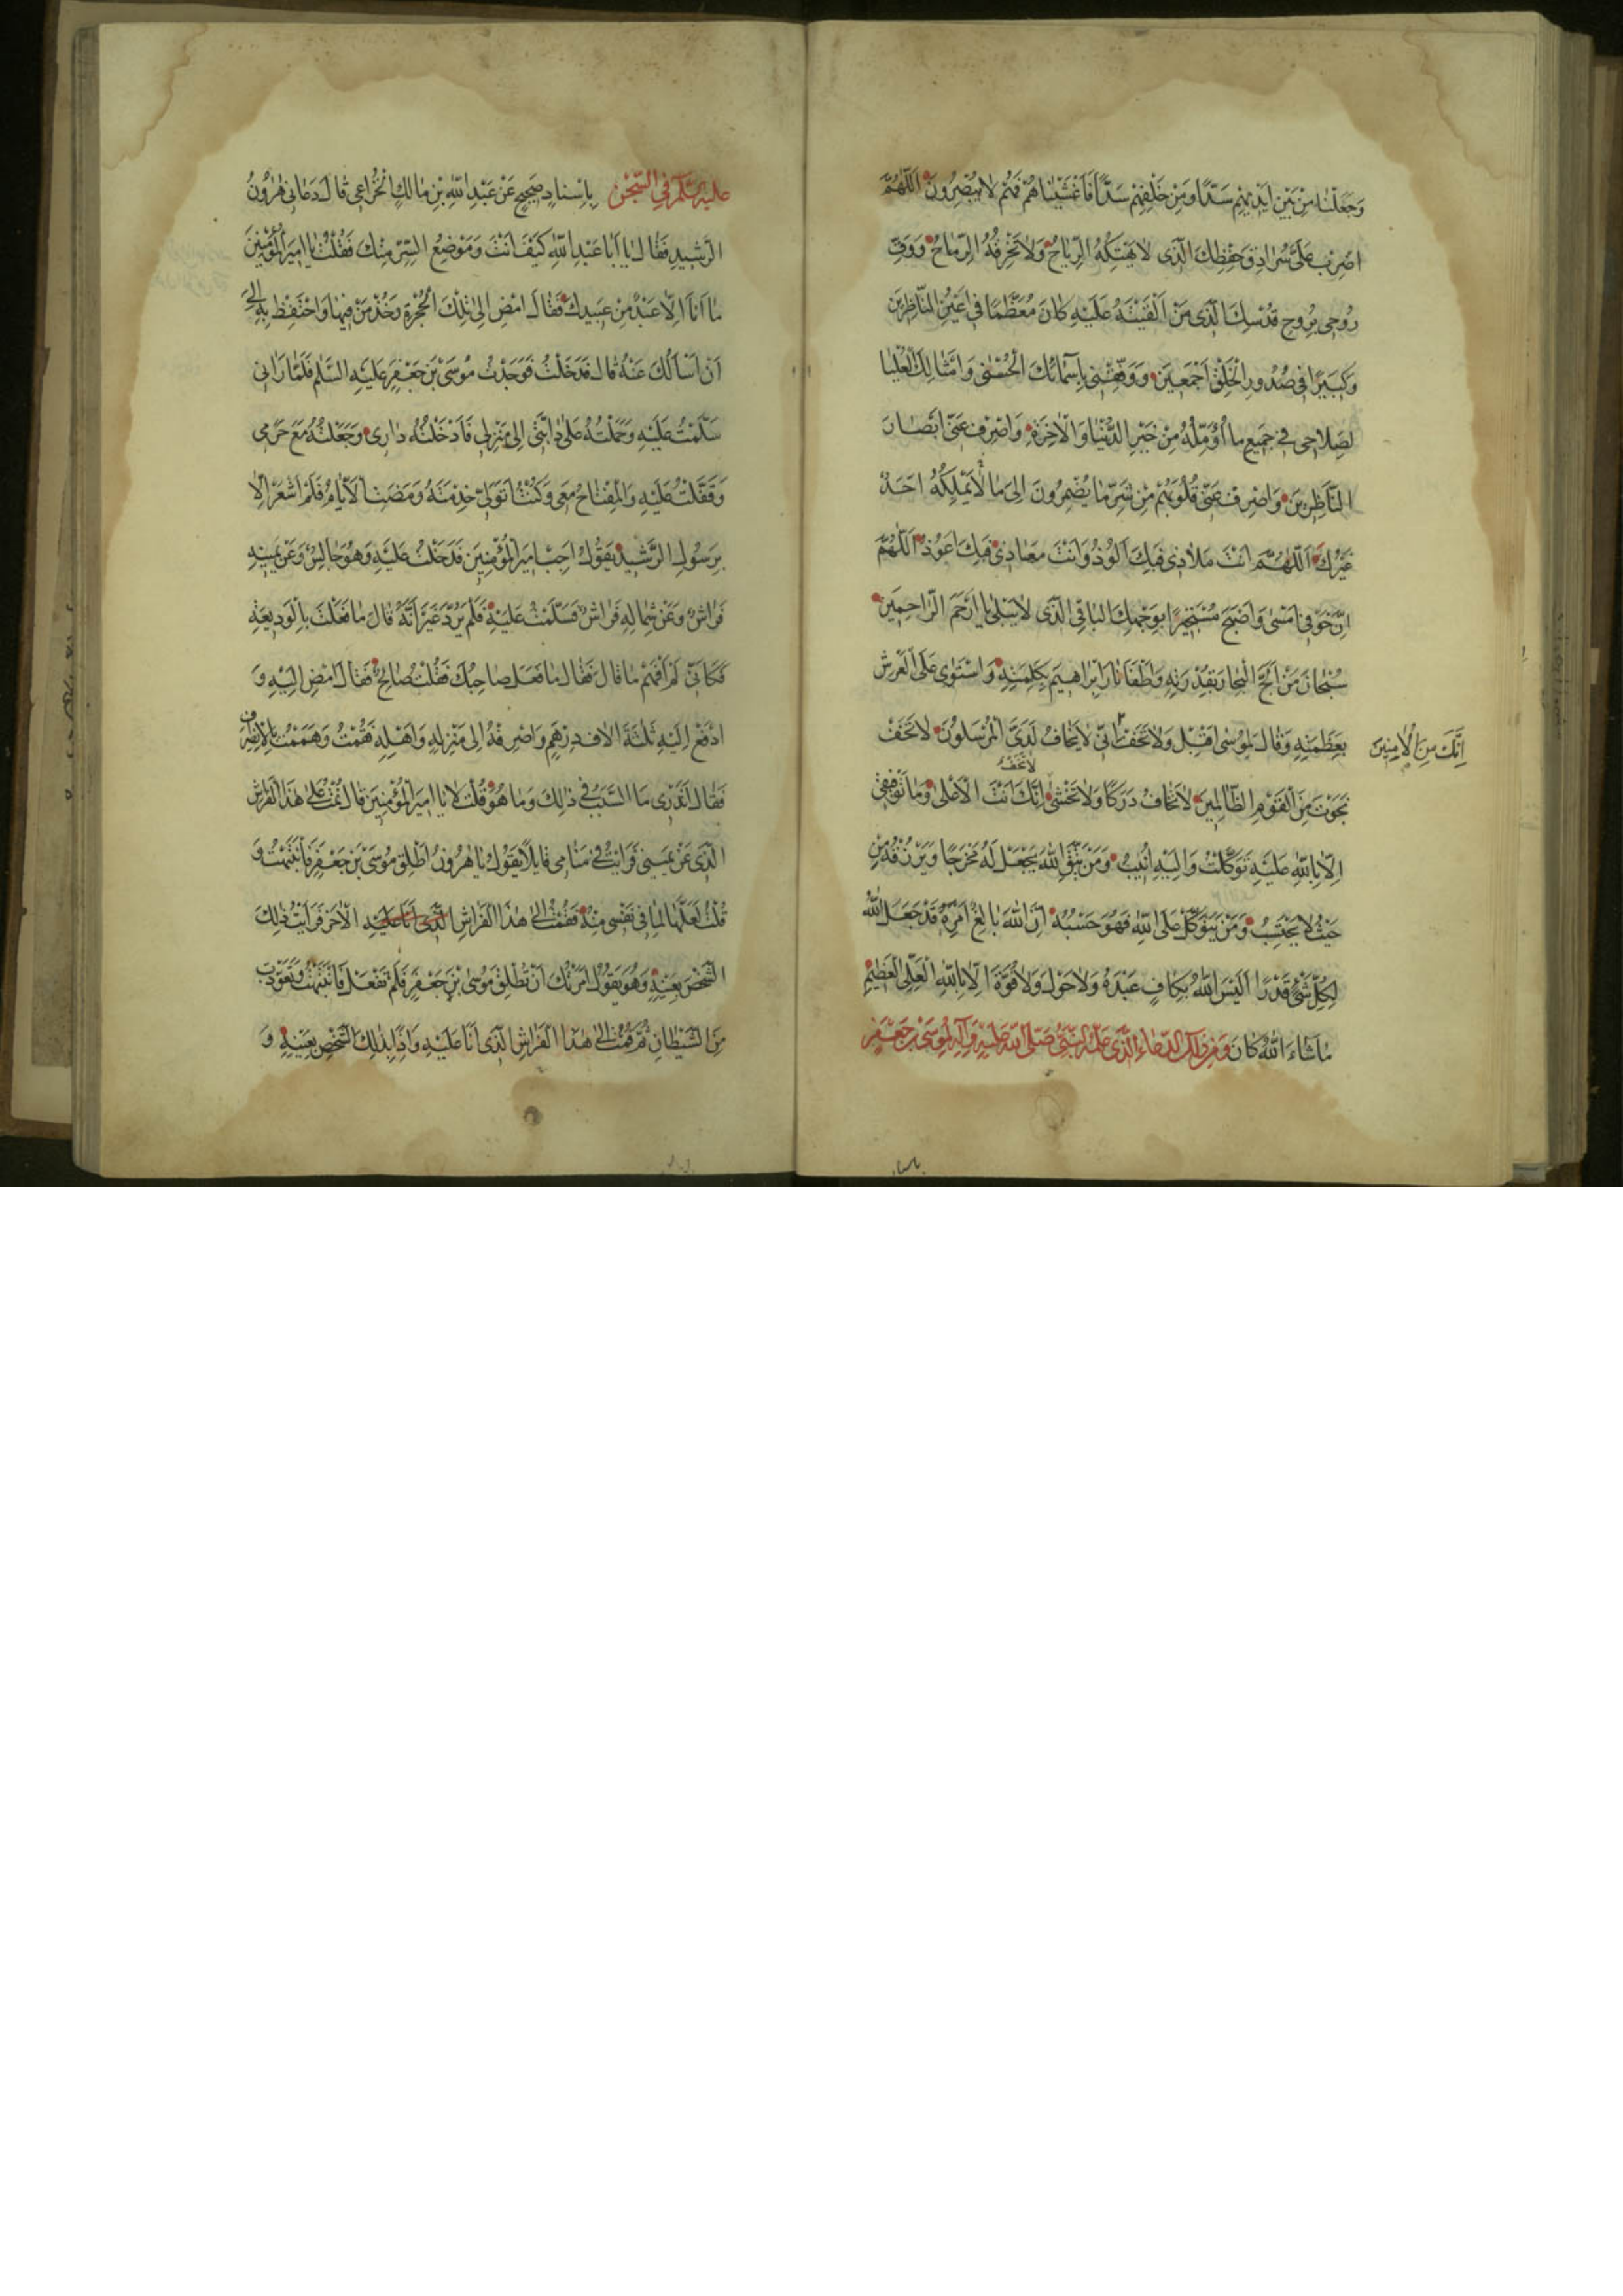 وَجَعَلْنَا مِنْ بَيْنِ اَيْدِيهِمْ سَدًّا وَمِنْ خَلْفِهِمْ سَدًّا فَاَغْشَيْنَاهُمْ فَهُمْ لَا يُبْصِرُونَ اَللّٰهُمَّ
اضْرِبْ عَلَيَّ سُرَادِقَ حِفْظِكَ الَّذِي لَا يَهْتِكُهُ الرِّيَاحُ وَلَا تَخْرِقُهُ الرِّمَاحُ وَوَقِّ
رُوحِي بِرُوحِ قُدْسِكَ الَّذِي مَنْ اَلْقَيْتَهُ عَلَيْهِ كَانَ مُعَظَّمًا فِي اَعْيُنِ النَّاظِرِينَ
وَكَبِيرًا فِي صُدُورِ الْخَلْقِ اَجْمَعِينَ وَوَفِّقْنِي بِاَسْمَائِكَ الْحُسْنٰى وَاَمْثَالِكَ الْعُلْيَا
لِصَلَاحِي فِي جَمِيعِ مَا اُؤَمِّلُهُ مِنْ خَيْرِ الدُّنْيَا وَالْاٰخِرَةِ وَاصْرِفْ عَنِّي اَبْصَارَ
النَّاظِرِينَ وَاصْرِفْ عَنِّي قُلُوبَهُمْ مِنْ شَرِّ مَا يُضْمِرُونَ اِلٰى مَا لَا يَمْلِكُهُ اَحَدٌ
غَيْرُكَ اَللّٰهُمَّ اَنْتَ مَلَاذِي فَبِكَ اَلُوذُ وَاَنْتَ مَعَاذِي فَبِكَ اَعُوذُ اَللّٰهُمَّ
اِنَّ خَوْفِي اَمْسٰى وَاَصْبَحَ مُسْتَجِيرًا بِوَجْهِكَ الْبَاقِي الَّذِي لَا يَبْلٰى يَا اَرْحَمَ الرَّاحِمِينَ
سُبْحَانَ مَنْ اَلَجَّ الْبِحَارَ بِقُدْرَتِهِ وَاَطْفَاَ نَارَ اِبْرَاهِيمَ بِكَلِمَتِهِ وَاسْتَوٰى عَلَى الْعَرْشِ
بِعَظَمَتِهِ وَقَالَ لِمُوسٰى اَقْبِلْ وَلَا تَخَفْ اِنِّي لَا يَخَافُ لَدَيَّ الْمُرْسَلُونَ لَا تَخَفْ
اِنَّكَ مِنَ الْاٰمِنِينَ
نَجَوْتَ مِنَ الْقَوْمِ الظَّالِمِينَ لَا تَخَافُ دَرَكًا وَلَا تَخْشٰى اِنَّكَ اَنْتَ الْاَعْلٰى وَمَا تَوْفِيقِي
لَا تَخَفْ
اِلَّا بِاللّٰهِ عَلَيْهِ تَوَكَّلْتُ وَاِلَيْهِ اُنِيبُ وَمَنْ يَتَّقِ اللّٰهَ يَجْعَلْ لَهُ مَخْرَجًا وَيَرْزُقْهُ مِنْ
حَيْثُ لَا يَحْتَسِبُ وَمَنْ يَتَوَكَّلْ عَلَى اللّٰهِ فَهُوَ حَسْبُهُ اِنَّ اللّٰهَ بَالِغُ اَمْرِهِ قَدْ جَعَلَ اللّٰهُ
لِكُلِّ شَيْءٍ قَدْرًا اَلَيْسَ اللّٰهُ بِكَافٍ عَبْدَهُ وَلَا حَوْلَ وَلَا قُوَّةَ اِلَّا بِاللّٰهِ الْعَلِيِّ الْعَظِيمِ
مَا شَاءَ اللّٰهُ كَانَ وَمِنْ ذٰلِكَ الدُّعَاءِ الَّذِي عَلَّمَهُ النَّبِيُّ صَلَّى اللّٰهُ عَلَيْهِ وَاٰلِهِ لِمُوسَى بْنِ جَعْفَرٍ
عَلَيْهِ السَّلٰمُ فِي السِّجْنِ بِاِسْنَادٍ صَحِيحٍ عَنْ عَبْدِ اللّٰهِ بْنِ مَالِكٍ الْخُزَاعِي قَالَ دَعَانِي هٰرُونُ
الرَّشِيدُ فَقَالَ يَا اَبَا عَبْدِ اللّٰهِ كَيْفَ اَنْتَ وَمَوْضِعُ السِّرِّ مِنْكَ فَقُلْتُ يَا اَمِيرَ الْمُؤْمِنِينَ
مَا اَنَا اِلَّا عَبْدٌ مِنْ عَبِيدِكَ فَقَالَ امْضِ اِلٰى تِلْكَ الْحُجْرَةِ وَخُذْ مَنْ فِيهَا وَاحْتَفِظْ بِهِ اِلٰى
اَنْ اَسْاَلَكَ عَنْهُ قَالَ فَدَخَلْتُ فَوَجَدْتُ مُوسَى بْنَ جَعْفَرٍ عَلَيْهِ السَّلٰمُ فَلَمَّا رَاٰنِي
سَلَّمْتُ عَلَيْهِ وَحَمَلْتُهُ عَلٰى دَابَّتِي اِلٰى مَنْزِلِي فَاَدْخَلْتُهُ دَارِي وَجَعَلْتُهُ مَعَ حَرَمِي
وَقَفَّلْتُ عَلَيْهِ وَالْمِفْتَاحُ مَعِي وَكُنْتُ اَتَوَلّٰى خِدْمَتَهُ وَمَضَتِ الْاَيَّامُ فَلَمْ اَشْعُرْ اِلَّا
بِرَسُولِ الرَّشِيدِ يَقُولُ اَجِبْ اَمِيرَ الْمُؤْمِنِينَ فَدَخَلْتُ عَلَيْهِ وَهُوَ جَالِسٌ وَعَنْ يَمِينِهِ
فِرَاشٌ وَعَنْ شِمَالِهِ فِرَاشٌ فَسَلَّمْتُ عَلَيْهِ فَلَمْ يَرُدَّ غَيْرَ اَنَّهُ قَالَ مَا فَعَلْتَ بِالْوَدِيعَةِ
فَكَاَنِّي لَمْ اَفْهَمْ مَا قَالَ فَقَالَ مَا فَعَلَ صَاحِبُكَ فَقُلْتُ صَالِحٌ فَقَالَ امْضِ اِلَيْهِ وَ
ادْفَعْ اِلَيْهِ ثَلٰثَةَ اٰلَافِ دِرْهَمٍ وَاصْرِفْهُ اِلٰى مَنْزِلِهِ وَاَهْلِهِ فَقُمْتُ وَهَمَمْتُ بِالْاِنْصِرَافِ
فَقَالَ اَتَدْرِي مَا السَّبَبُ فِي ذٰلِكَ وَمَا هُوَ قُلْتُ لَا يَا اَمِيرَ الْمُؤْمِنِينَ قَالَ نِمْتُ عَلٰى هٰذَا الْفِرَاشِ
الَّذِي عَنْ يَمِينِي فَرَاَيْتُ فِي مَنَامِي قَائِلًا يَقُولُ يَا هٰرُونُ اَطْلِقْ مُوسَى بْنَ جَعْفَرٍ فَانْتَبَهْتُ وَ
قُلْتُ لَعَلَّهَا لِمَا فِي نَفْسِي مِنْهُ فَقُمْتُ اِلٰى هٰذَا الْفِرَاشِ الَّذِي اَنَا عَلَيْهِ الْاٰخَرِ فَرَاَيْتُ ذٰلِكَ
الشَّخْصَ بِعَيْنِهِ وَهُوَ يَقُولُ اَمَرْتُكَ اَنْ تُطْلِقَ مُوسَى بْنَ جَعْفَرٍ فَلَمْ تَفْعَلْ فَانْتَبَهْتُ وَتَعَوَّذْتُ
مِنَ الشَّيْطَانِ ثُمَّ قُمْتُ اِلٰى هٰذَا الْفِرَاشِ الَّذِي اَنَا عَلَيْهِ وَاِذَا بِذٰلِكَ الشَّخْصِ بِعَيْنِهِ وَ